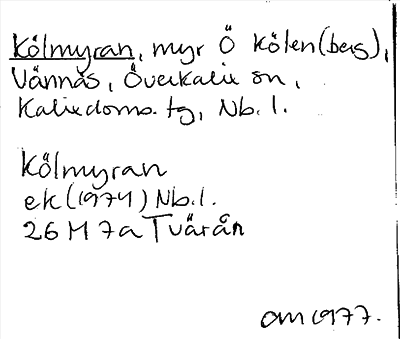 Kölmyran, myr Ö Kölen (berg),
Vännäs, Överkalix sn,
Kalixdoms. tg, Nb. l.
Kölmyran
ek (1974) Nb. l.
26 M 7a Tvärån
OM 1977.